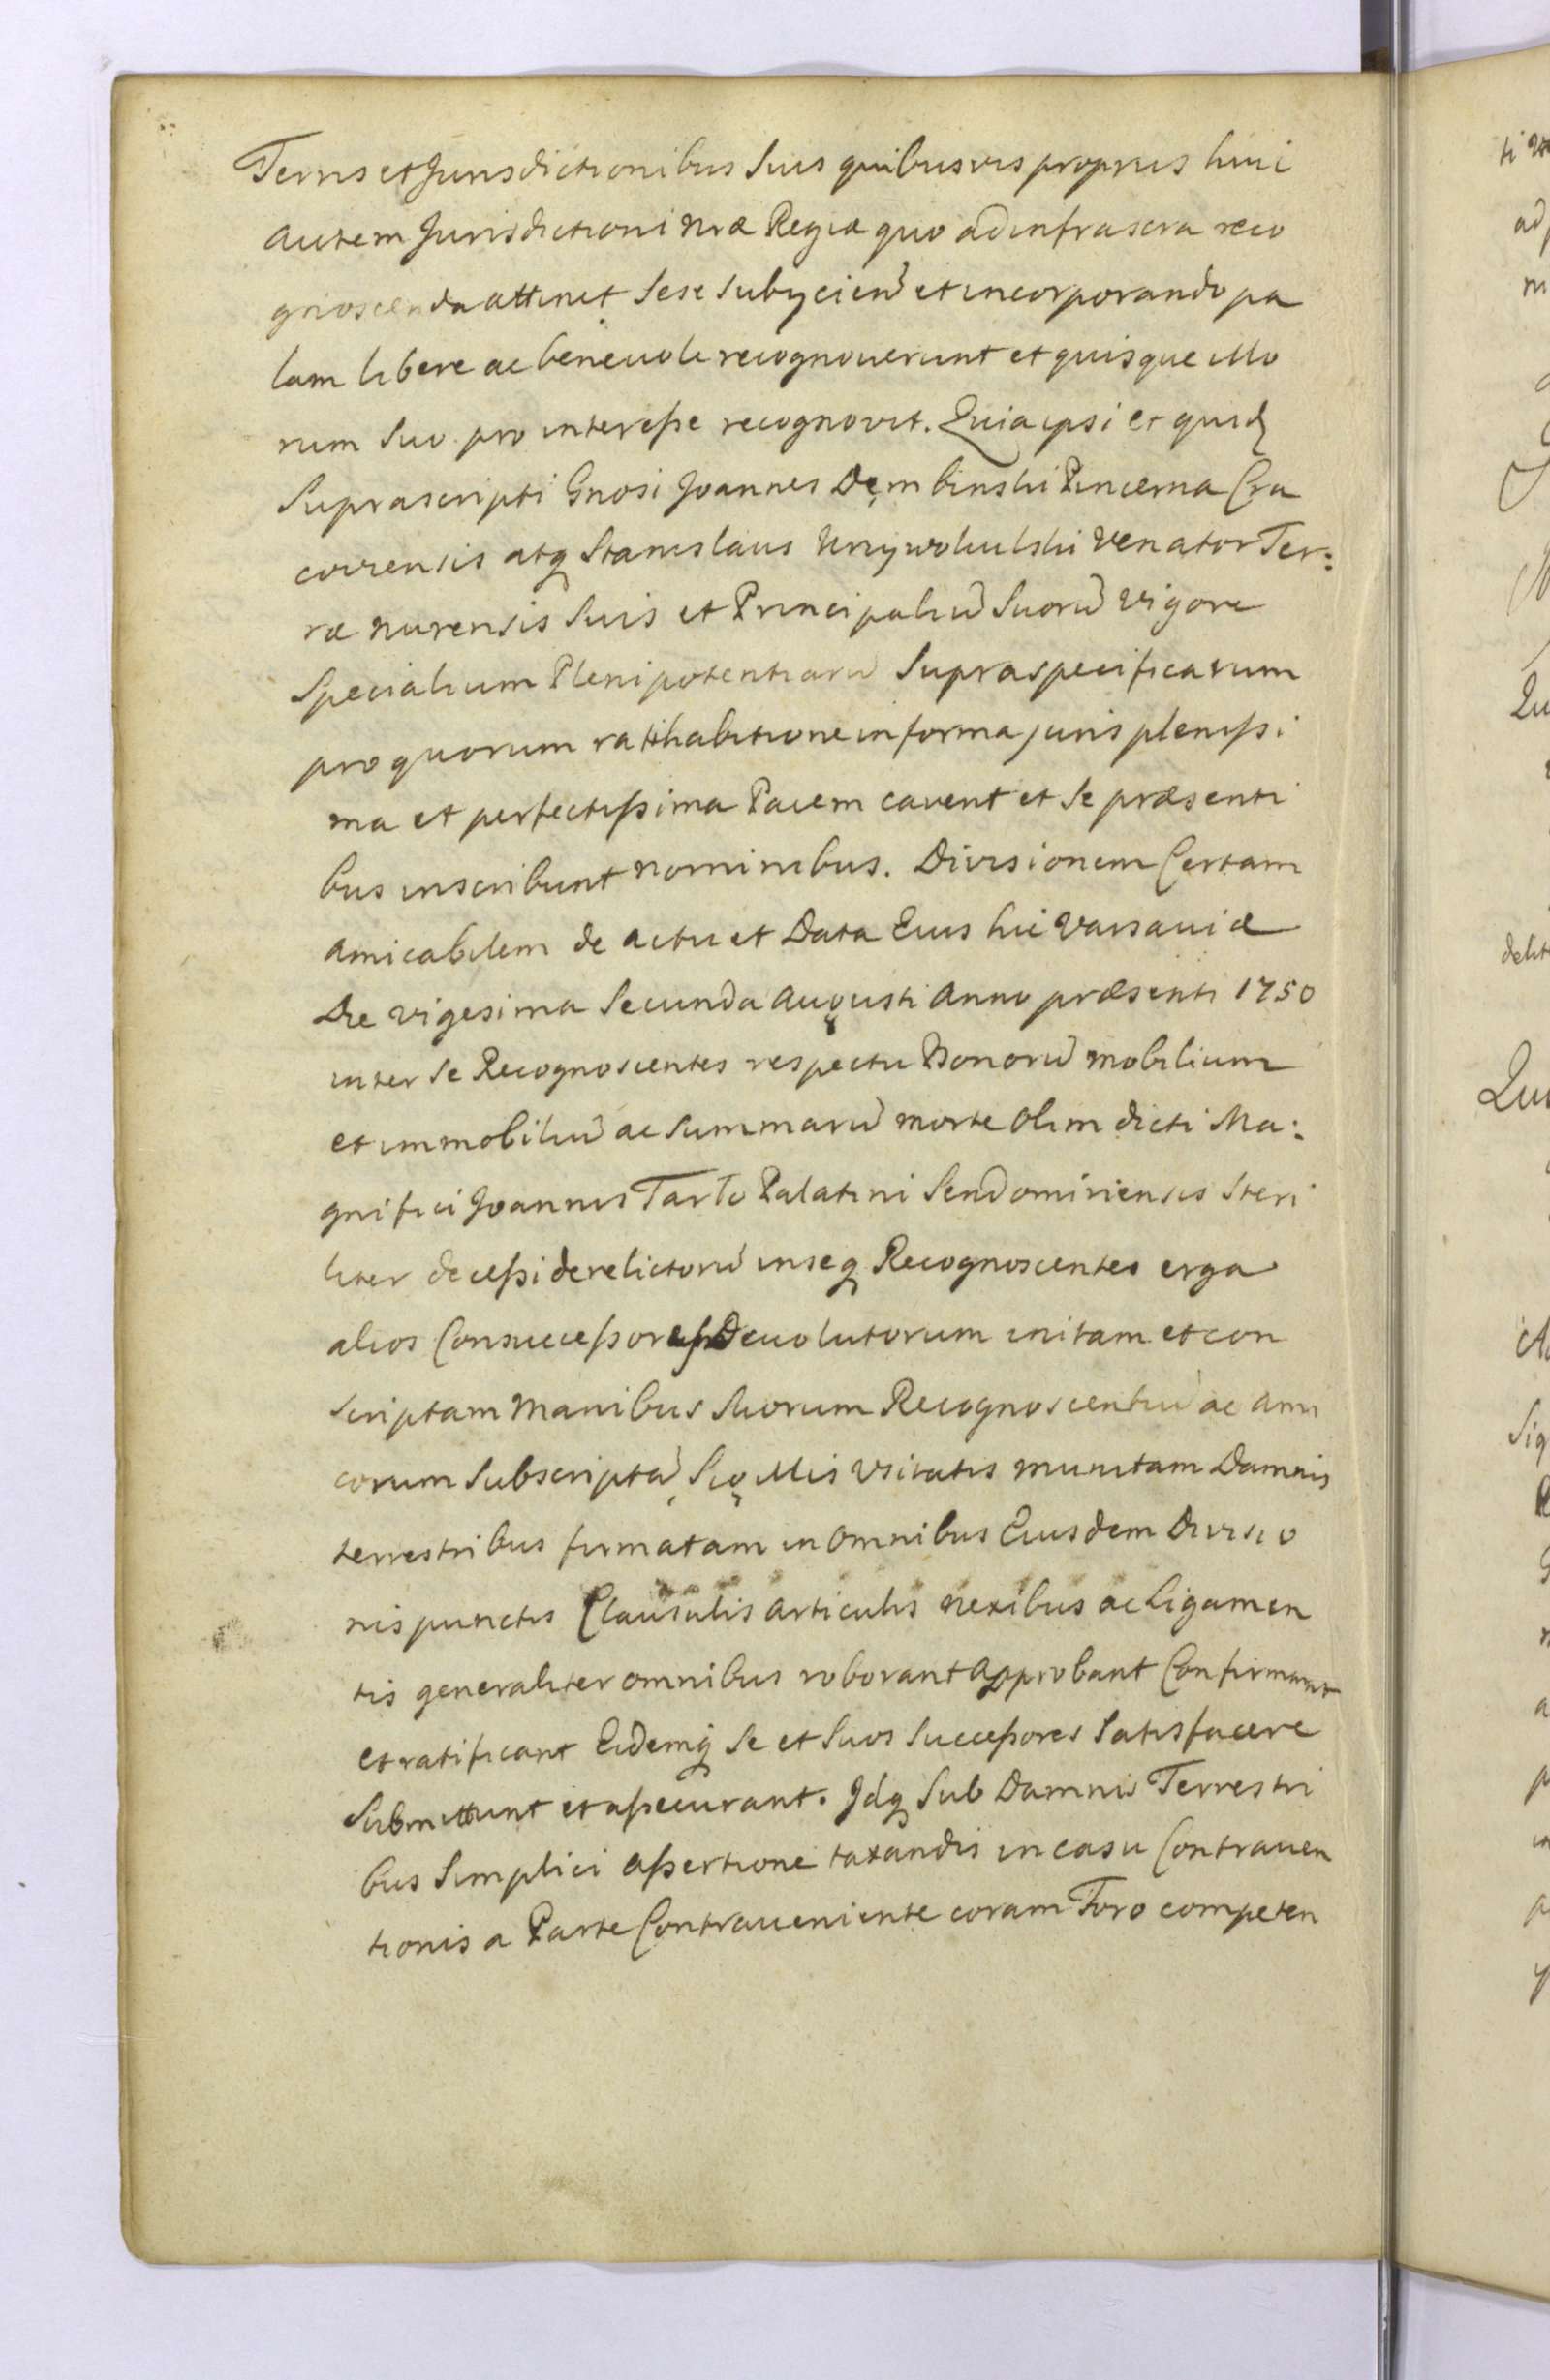 Terris et Jurisdictionibus Suis quibusvis propriis huic
autem Jurisdictioni nræ Regiæ quo ad infrascra reco
gnoscenda attinet Sese Subyciend et incorporando pa
lam libere ac benevole recognouerunt et quisque illo
rum Suo pro interesse recognovit. Quia ipsi et quid
Suprascripti Gnosi Joannes Dembinski Pincerna Cra
coviensis atq Stanislaus Venator Ter:
ræ nurensis Suis et Principaliu Suoru vigore
Specialium Plenipotentiaru Supraspecificatum
pro quorum ratihabitione in forma juris plenissi
ma et perfectissima Pacem cavent et Se præsenti
bus inscribunt nominibus. Divisionem Certam
amicabilem de actu et Data Eius hic Varsaviæ
Die vigesima Secunda augusti anno præsenti 1750
inter Se Recognoscentes respectu Bonoru mobilium
et immobiliu ac Summaru morte olim dicti Ma:
gnifici Joannis Tarło Palatini Sendomiriensis Steri
liter decessi derelictoru inseq Recognoscentes erga
alios Consuccessores Devolutorum initam et con
scriptam Manibus Suorum Recognoscentiu ac ami
corum Subscripta, Sigillis Usitatis munitam Damnis
terrestribus firmatam in omnibus Eiusdem Divisio
nis punctis Clausulis articulis nexibus ac Ligamen
tis generaliter omnibus roborant approbant Confirmant
et ratificant Eidemq Se et Suos Successores Satisfacere
Submittunt et assecurant. Idq Sub Damnis Terrestri
bus Simplici assertione taxandis in casu Contraven
tionis a Parte Contraveniente coram Foro competen